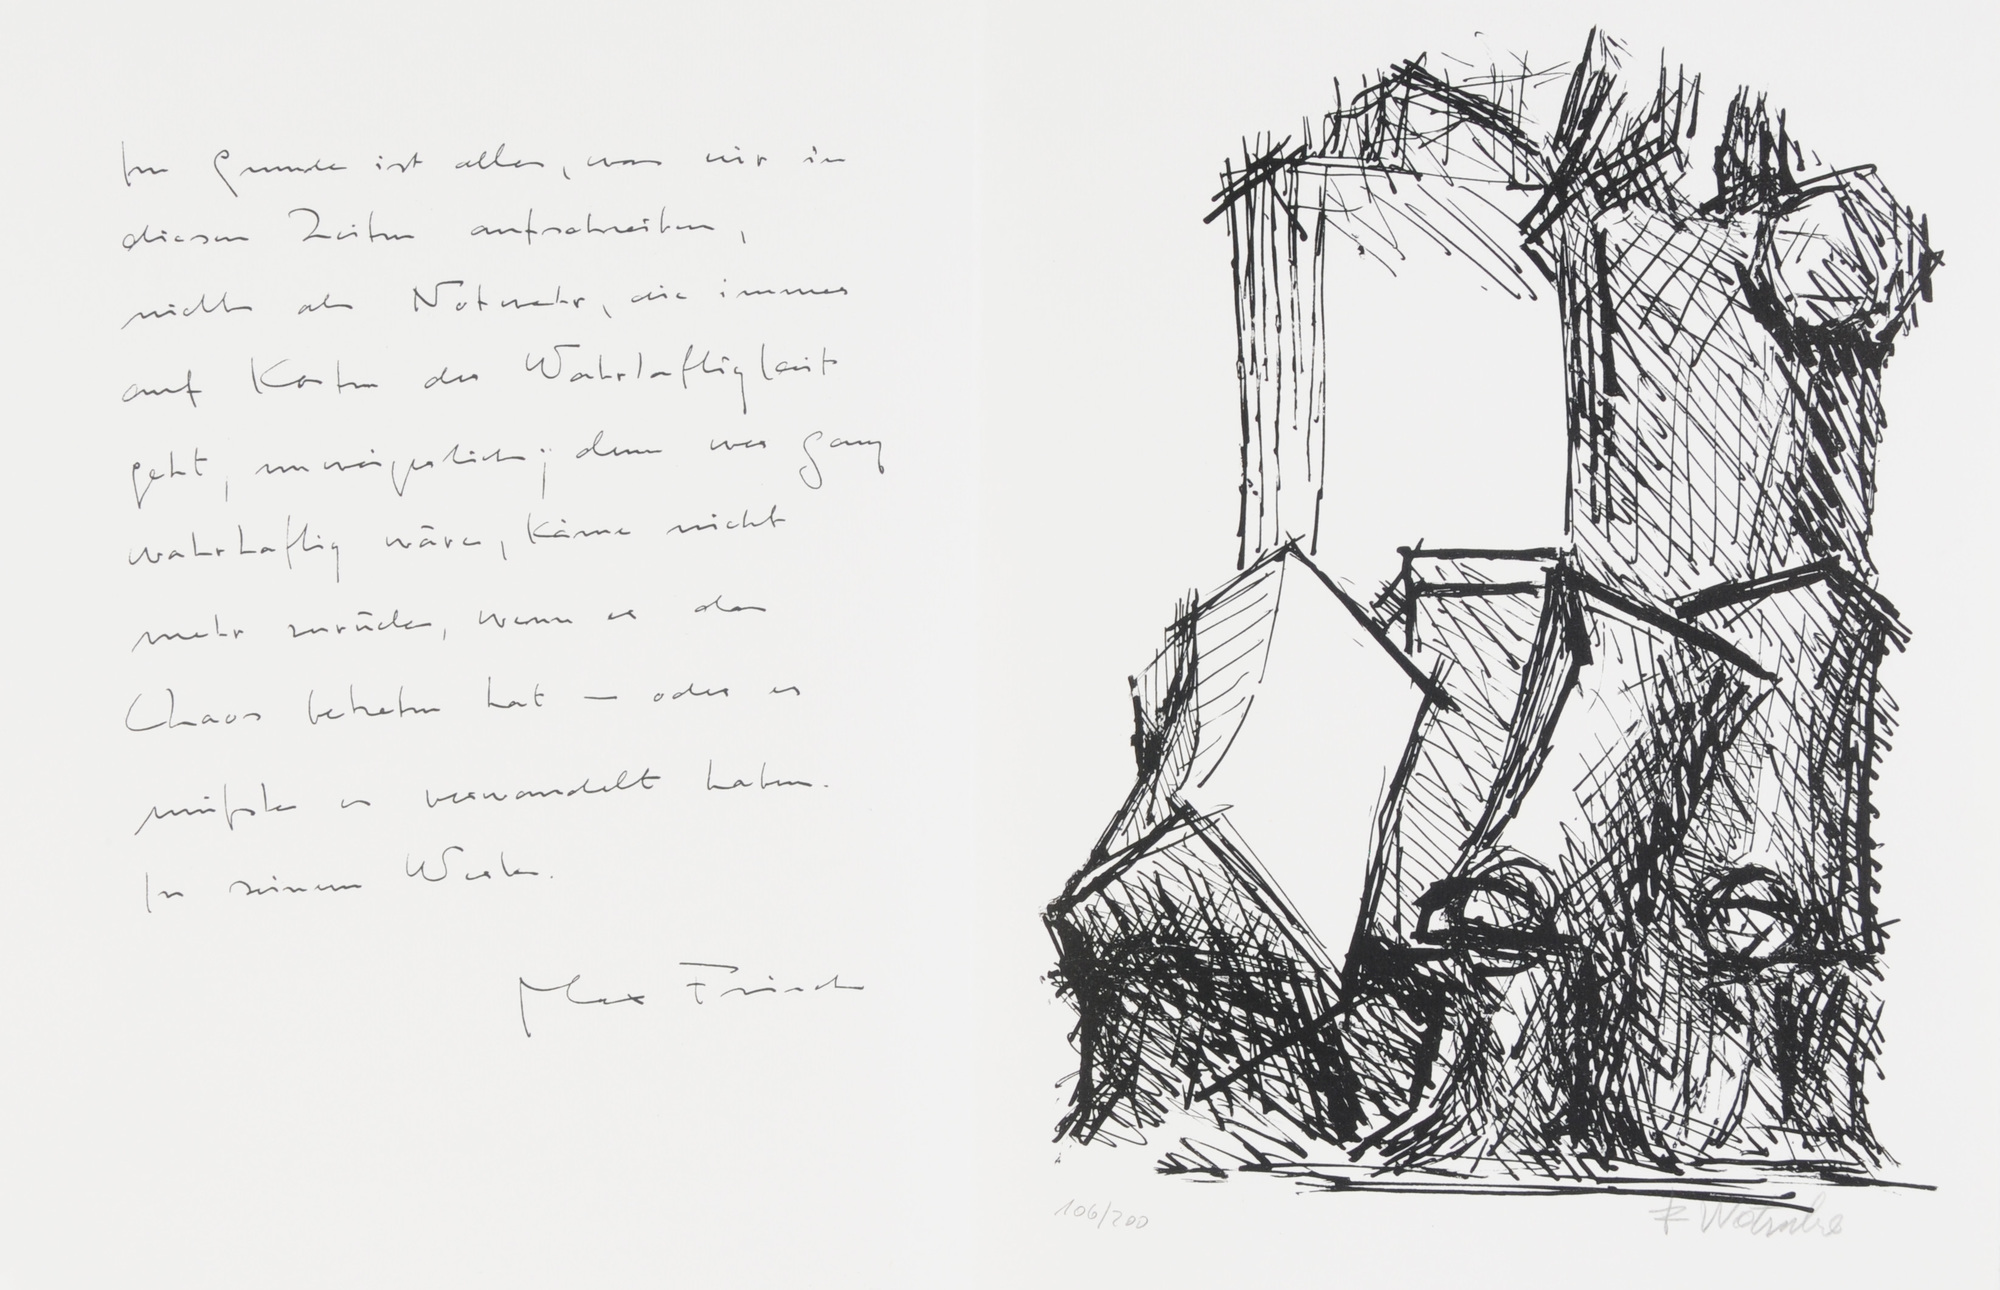 Im Grunde ist alles, was wir in
diesen Zeiten aufschreiben,
nichts als Notwehr, die immer
auf Kosten der Wahrhaftigkeit
geht, unweigerlich; denn wer ganz
wahrhaftig wäre, käme nicht
mehr zurück, wenn er das
Chaos betreten hat – oder er
müsste es verwandelt haben.
In seinem Werk.
Max Frisch
106/200
F Wotruba